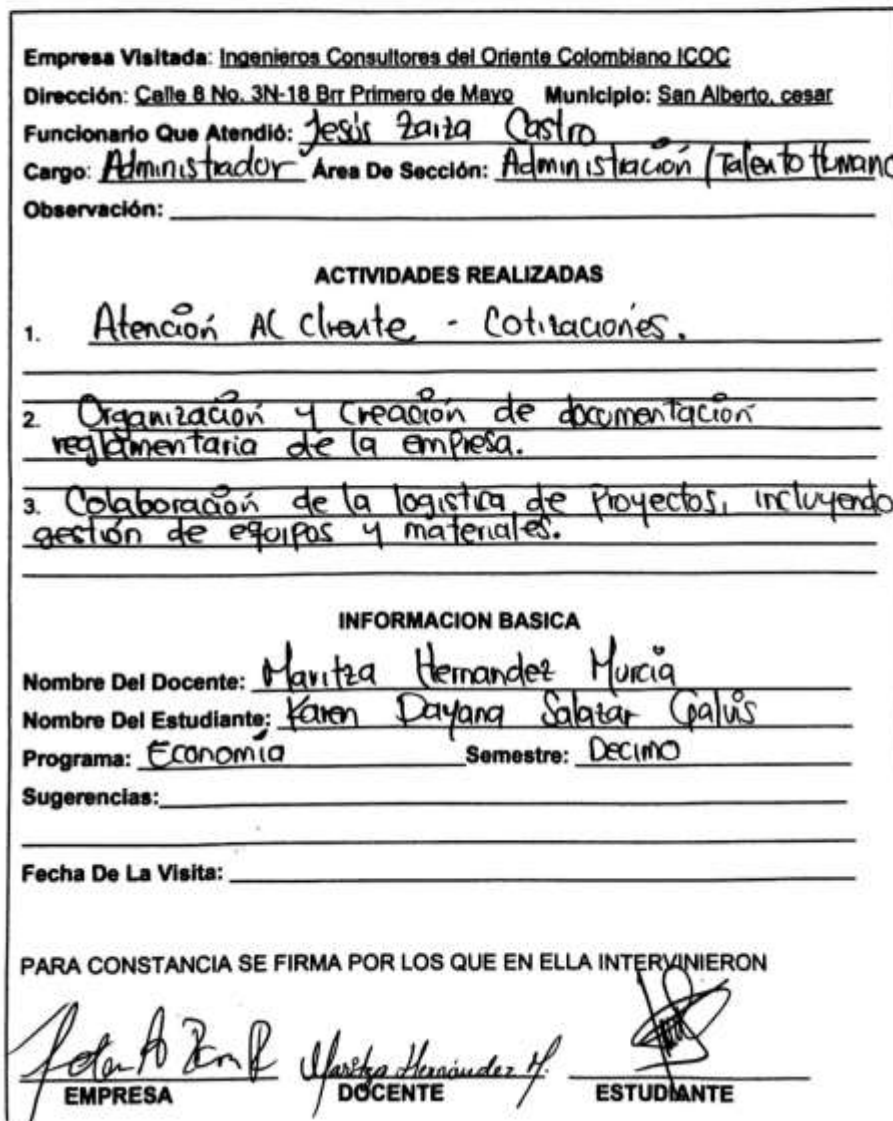 Empresa Visitada: Ingenieros Consultores del Oriente Colombiano ICOC
Dirección: Calle 8 No. 3N-18 Brr Primero de Mayo Municipio: San Alberto, cesar
Funcionario Que Atendió: Jesús Zaiza Castro
Cargo: Administrador Área De Sección: Administración / Talento Humano
Observación:
ACTIVIDADES REALIZADAS
1. Atención Al Cliente - Cotizaciones.
2. Organización y Creación de documentación
reglamentaria de la empresa.
3. Colaboración de la logistica de Proyectos, incluyendo
gestión de equipos y materiales.
INFORMACION BASICA
Nombre Del Docente: Maritza Hernandez Murcia
Nombre Del Estudiante: Karen Dayana Salazar Galvis
Programa: Economía Semestre: Decimo
Sugerencias:
Fecha De La Visita:
PARA CONSTANCIA SE FIRMA POR LOS QUE EN ELLA INTERVINIERON
Maritza Hernández M.
EMPRESA DOCENTE ESTUDIANTE